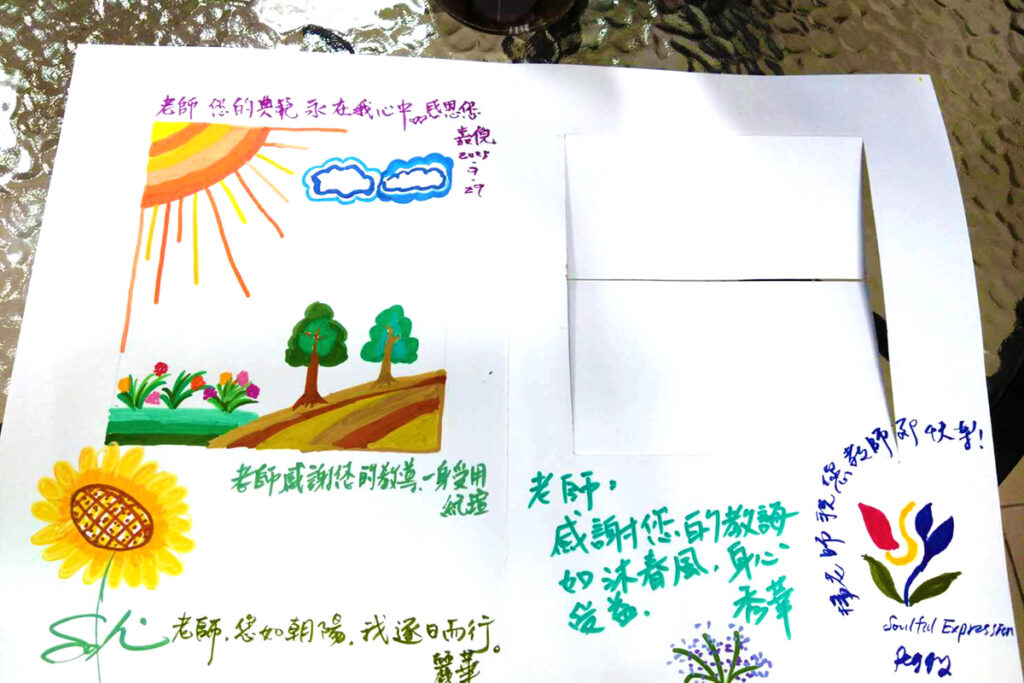 老師 您的典範 永在我心中。感恩您
嘉倪
2025
9
29
老師感謝您的教導,一身受用
老師,您如朝陽,我逐日而行。
麗華
老師,
感謝您的教誨
如沐春風,身心
受益.
秀華
老師祝您教師節快樂!
Soulful Expression
Peggy